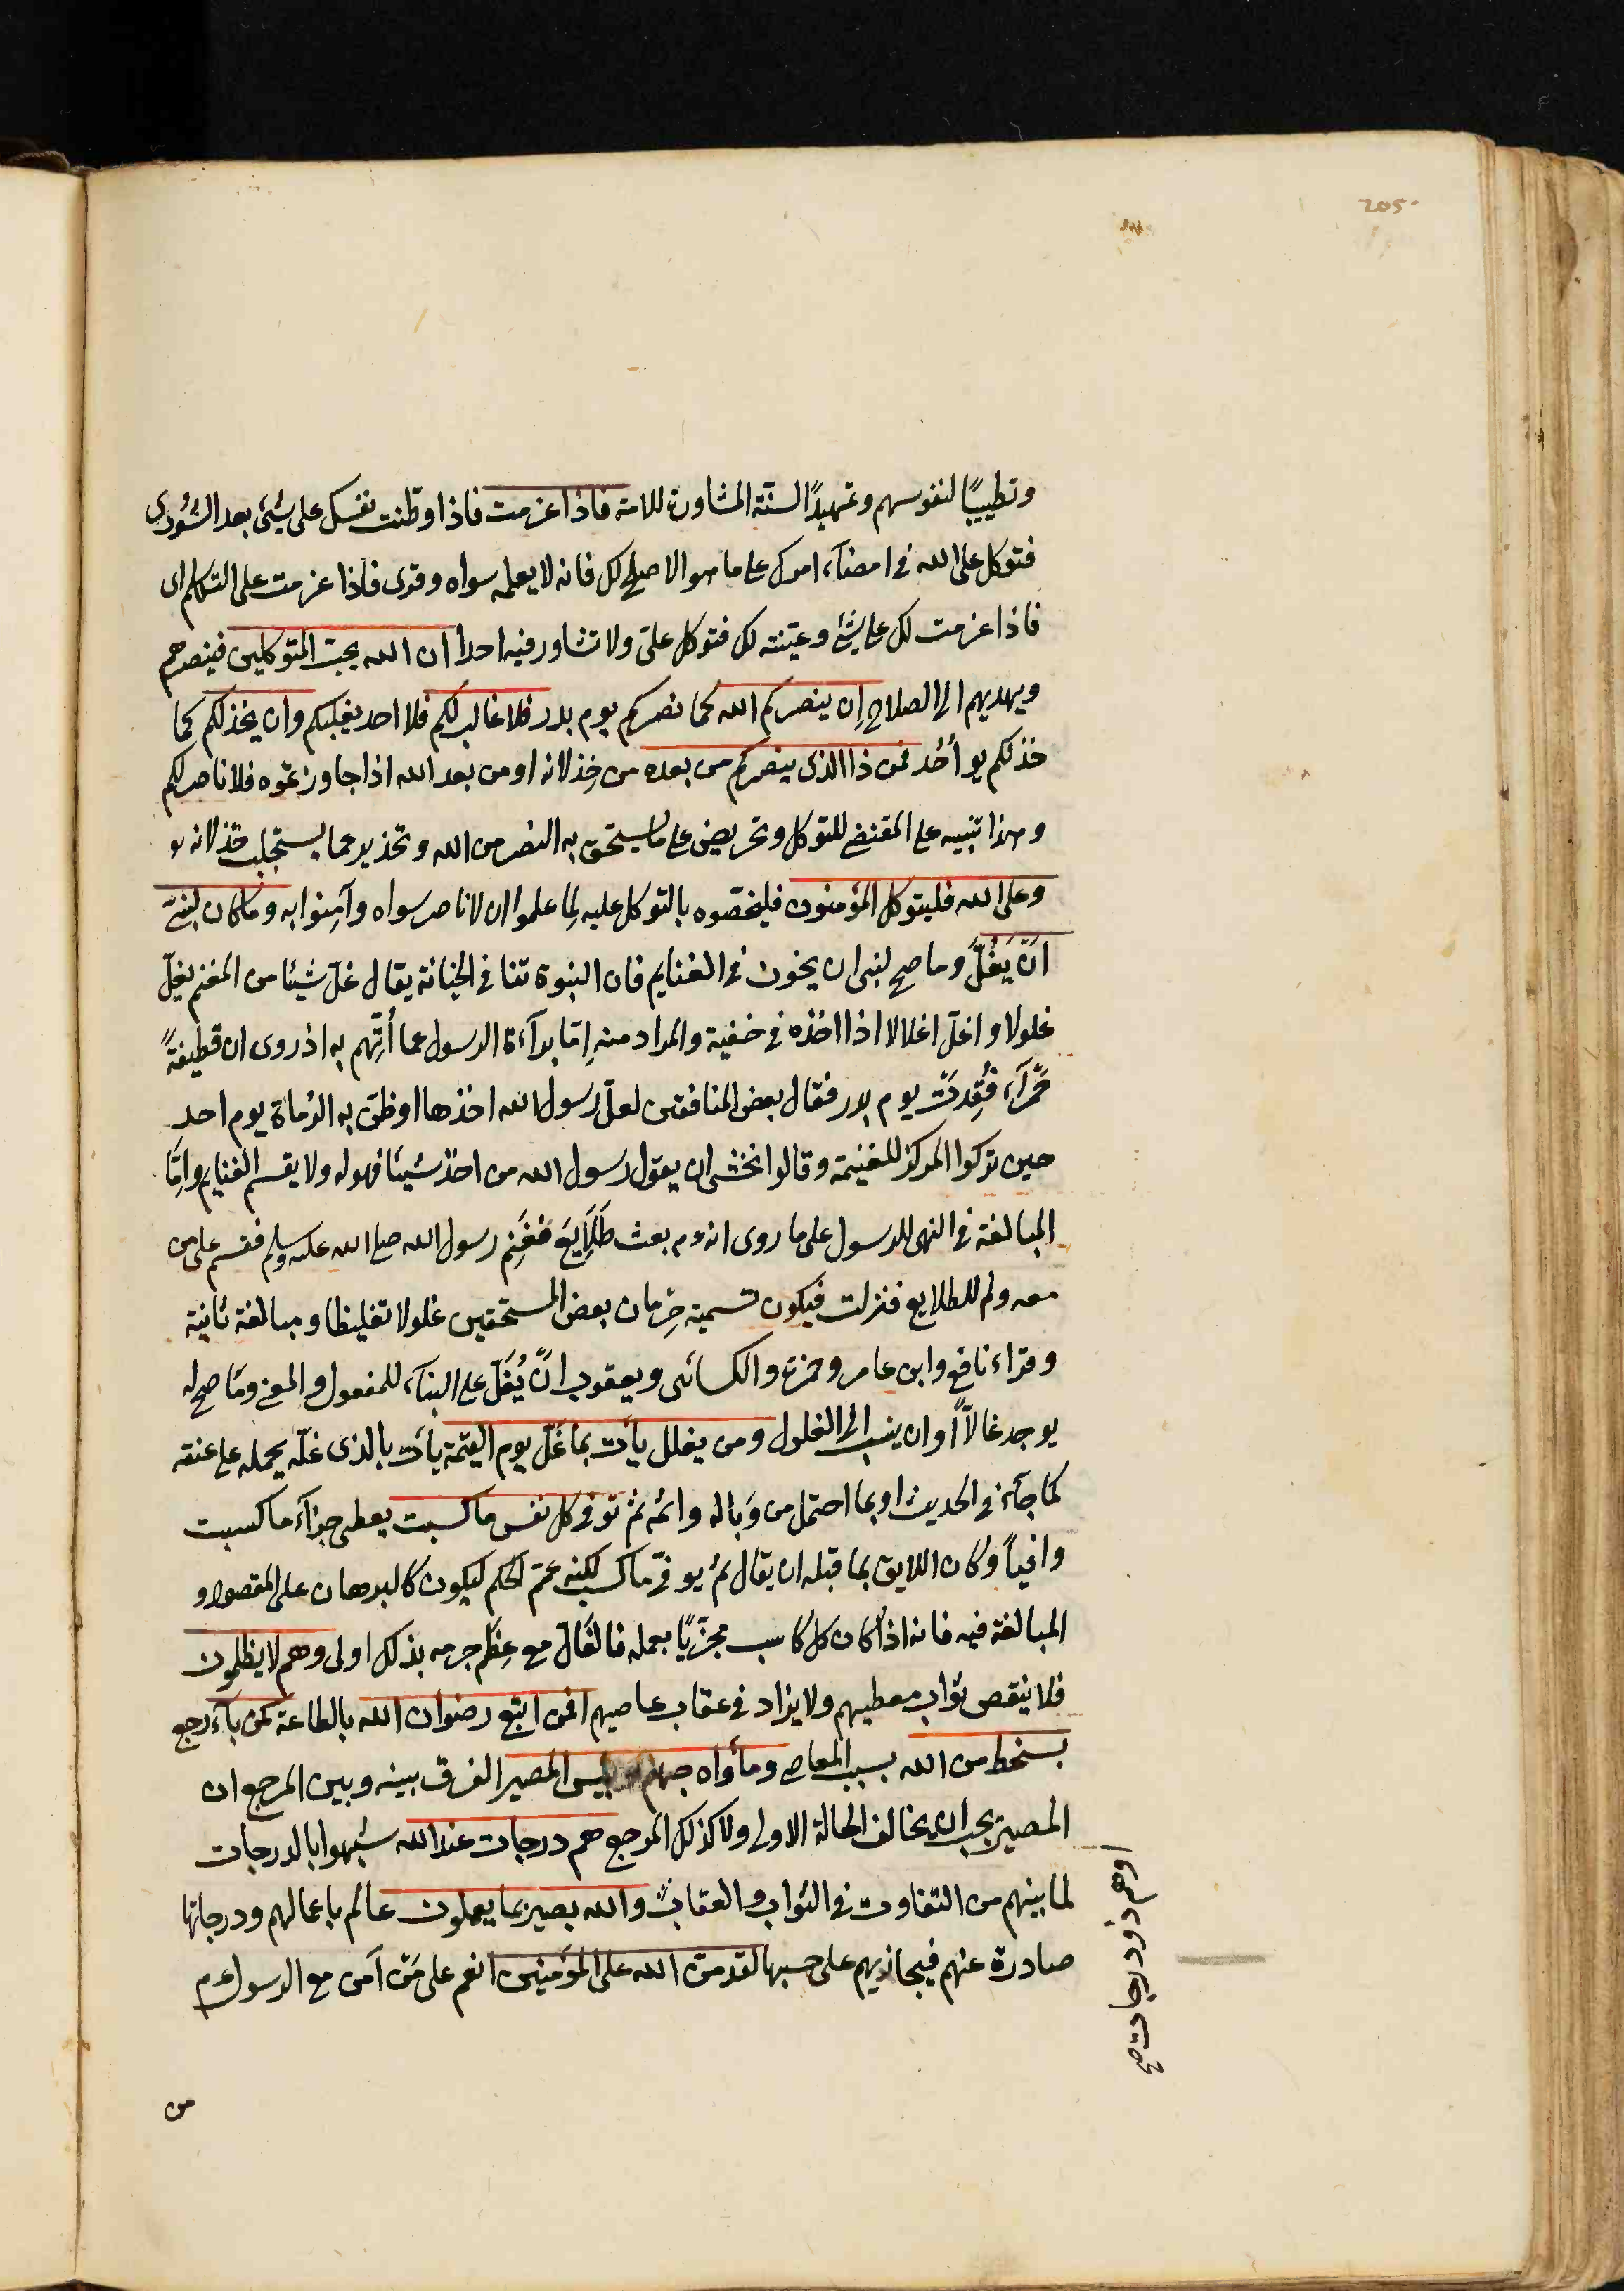 205
وتطييبًا لنفوسهم وتمهيدًا لسنّة المشاورة للامة فاذا عزمت فاذا وطّنت نفسك على شئ بعد الشورى
فتوكل على الله فى امضآء امرك على ما هو الاصلح لك فانه لا يعلمه سواه وقرى فاذا عزمت على التكلم اى
فاذا عزمت لك على شئ وعيّنته لك فتوكل علىّ ولا تشاور فيه احدا ان الله يحبّ المتوكلين فينصرهم
ويهديهم الى الصلاح اِن ينصركم الله كما نصركم يوم بدر فلا غالب لكم فلا احد يغلبكم وان يخذلكم كما
خذلكم يوم أُحُد فمن ذا الذى ينصركم من بعده من خِذلانه او من بعد الله اذا جاوزتموه فلا ناصر لكم
وهذا تنبيه على المقتضى للتوكل وتحريض على ما يستحق به النصر من الله وتحذير عما يستجلب خذلانه
وعلى الله فليتوكل المؤمنون فليخصّوه بالتوكل عليه لِما علموا ان لا ناصر سواه وآمِنوا به وما كان لنبىّ
اَنْ يَغُلَّ وما صح لنبى ان يخون فى الغنايم فان النبوة تنا فى الخيانة يقال غلّ شيئا من المغنم يغلّ
غلولا واغلّ اغلالا اذا اخذه فى خفية والمراد منه اِمّا برآءة الرسول عما اُتُّهم به اذ روى ان قطيفةً
حَمْرآء فُقِدَتْ يوم بدر فقال بعض المنافقين لعلّ رسول الله اخذها او ظنّ به الرُماة يوم احد
حين تركوا المركز للغنيمة وقالوا نخشى ان يقول رسول الله من اخذ شيئا فهو له ولا يقسم الغنايم واِمّا
المبالغة فى النهى للرسول على ما روى انه م بعث طَلَايِعَ فغَنِم رسول الله صلى الله عليه وسلم فقسم على من
معه ولم للطلايع فنزلت فيكون تسمية حِرمان بعض المستحقين غلولا تغليظا ومبالغة ثانية
وقراء نافع وابن عامر وحمزة والكسائى ويعقوب انْ يُغَلّ على البنآء للمفعول والمعنى وما صح له
يوجد غالاًّ او ان ينسب الى الغلول ومن يغلل يأت بما غَلّ يوم القيٰمة يأت بالذى غلّه يحمله على عنقه
كما جآء فى الحديث او بما احتمل من وَباله واثمه ثم توفى كل نفس ما كسبت يعطى جزآء ما كسبت
وافياً وكان اللايق بما قبله ان يقال ثم يوفّى ما كسب لكنه عمّ الحكم ليكون كالبرهان على المقصود و
المبالغة فيه فانه اذا كان كل كاسب مجزّيًا بعمله فالغالّ مع عِظَم جرمه بذلك اولى وهم لا يظلمون
فلا ينقص ثواب معطيهم ولا يزاد فى عقاب عاصيهم افمن اتبع رضوان الله بالطاعة كمن بآء رجع
بسخط من الله بسبب المعاصى ومأواه جهنم وبئس المصير الفرق بينه وبين المرجع ان
المصير يجب ان يخالف الحالة الاولى ولا كذلك المرجع هم درجات عند الله شبهوا بالدرجات
لما بينهم من التفاوت فى الثواب والعقاب والله بصير بما يعملون عالم باعمالهم ودرجاتها
صادرة عنهم فيجازيهم على حسبها لقد منّ الله على المؤمنين انعم على مَنْ آمن مع الرسول م
او هم ذوو درجات صح
من